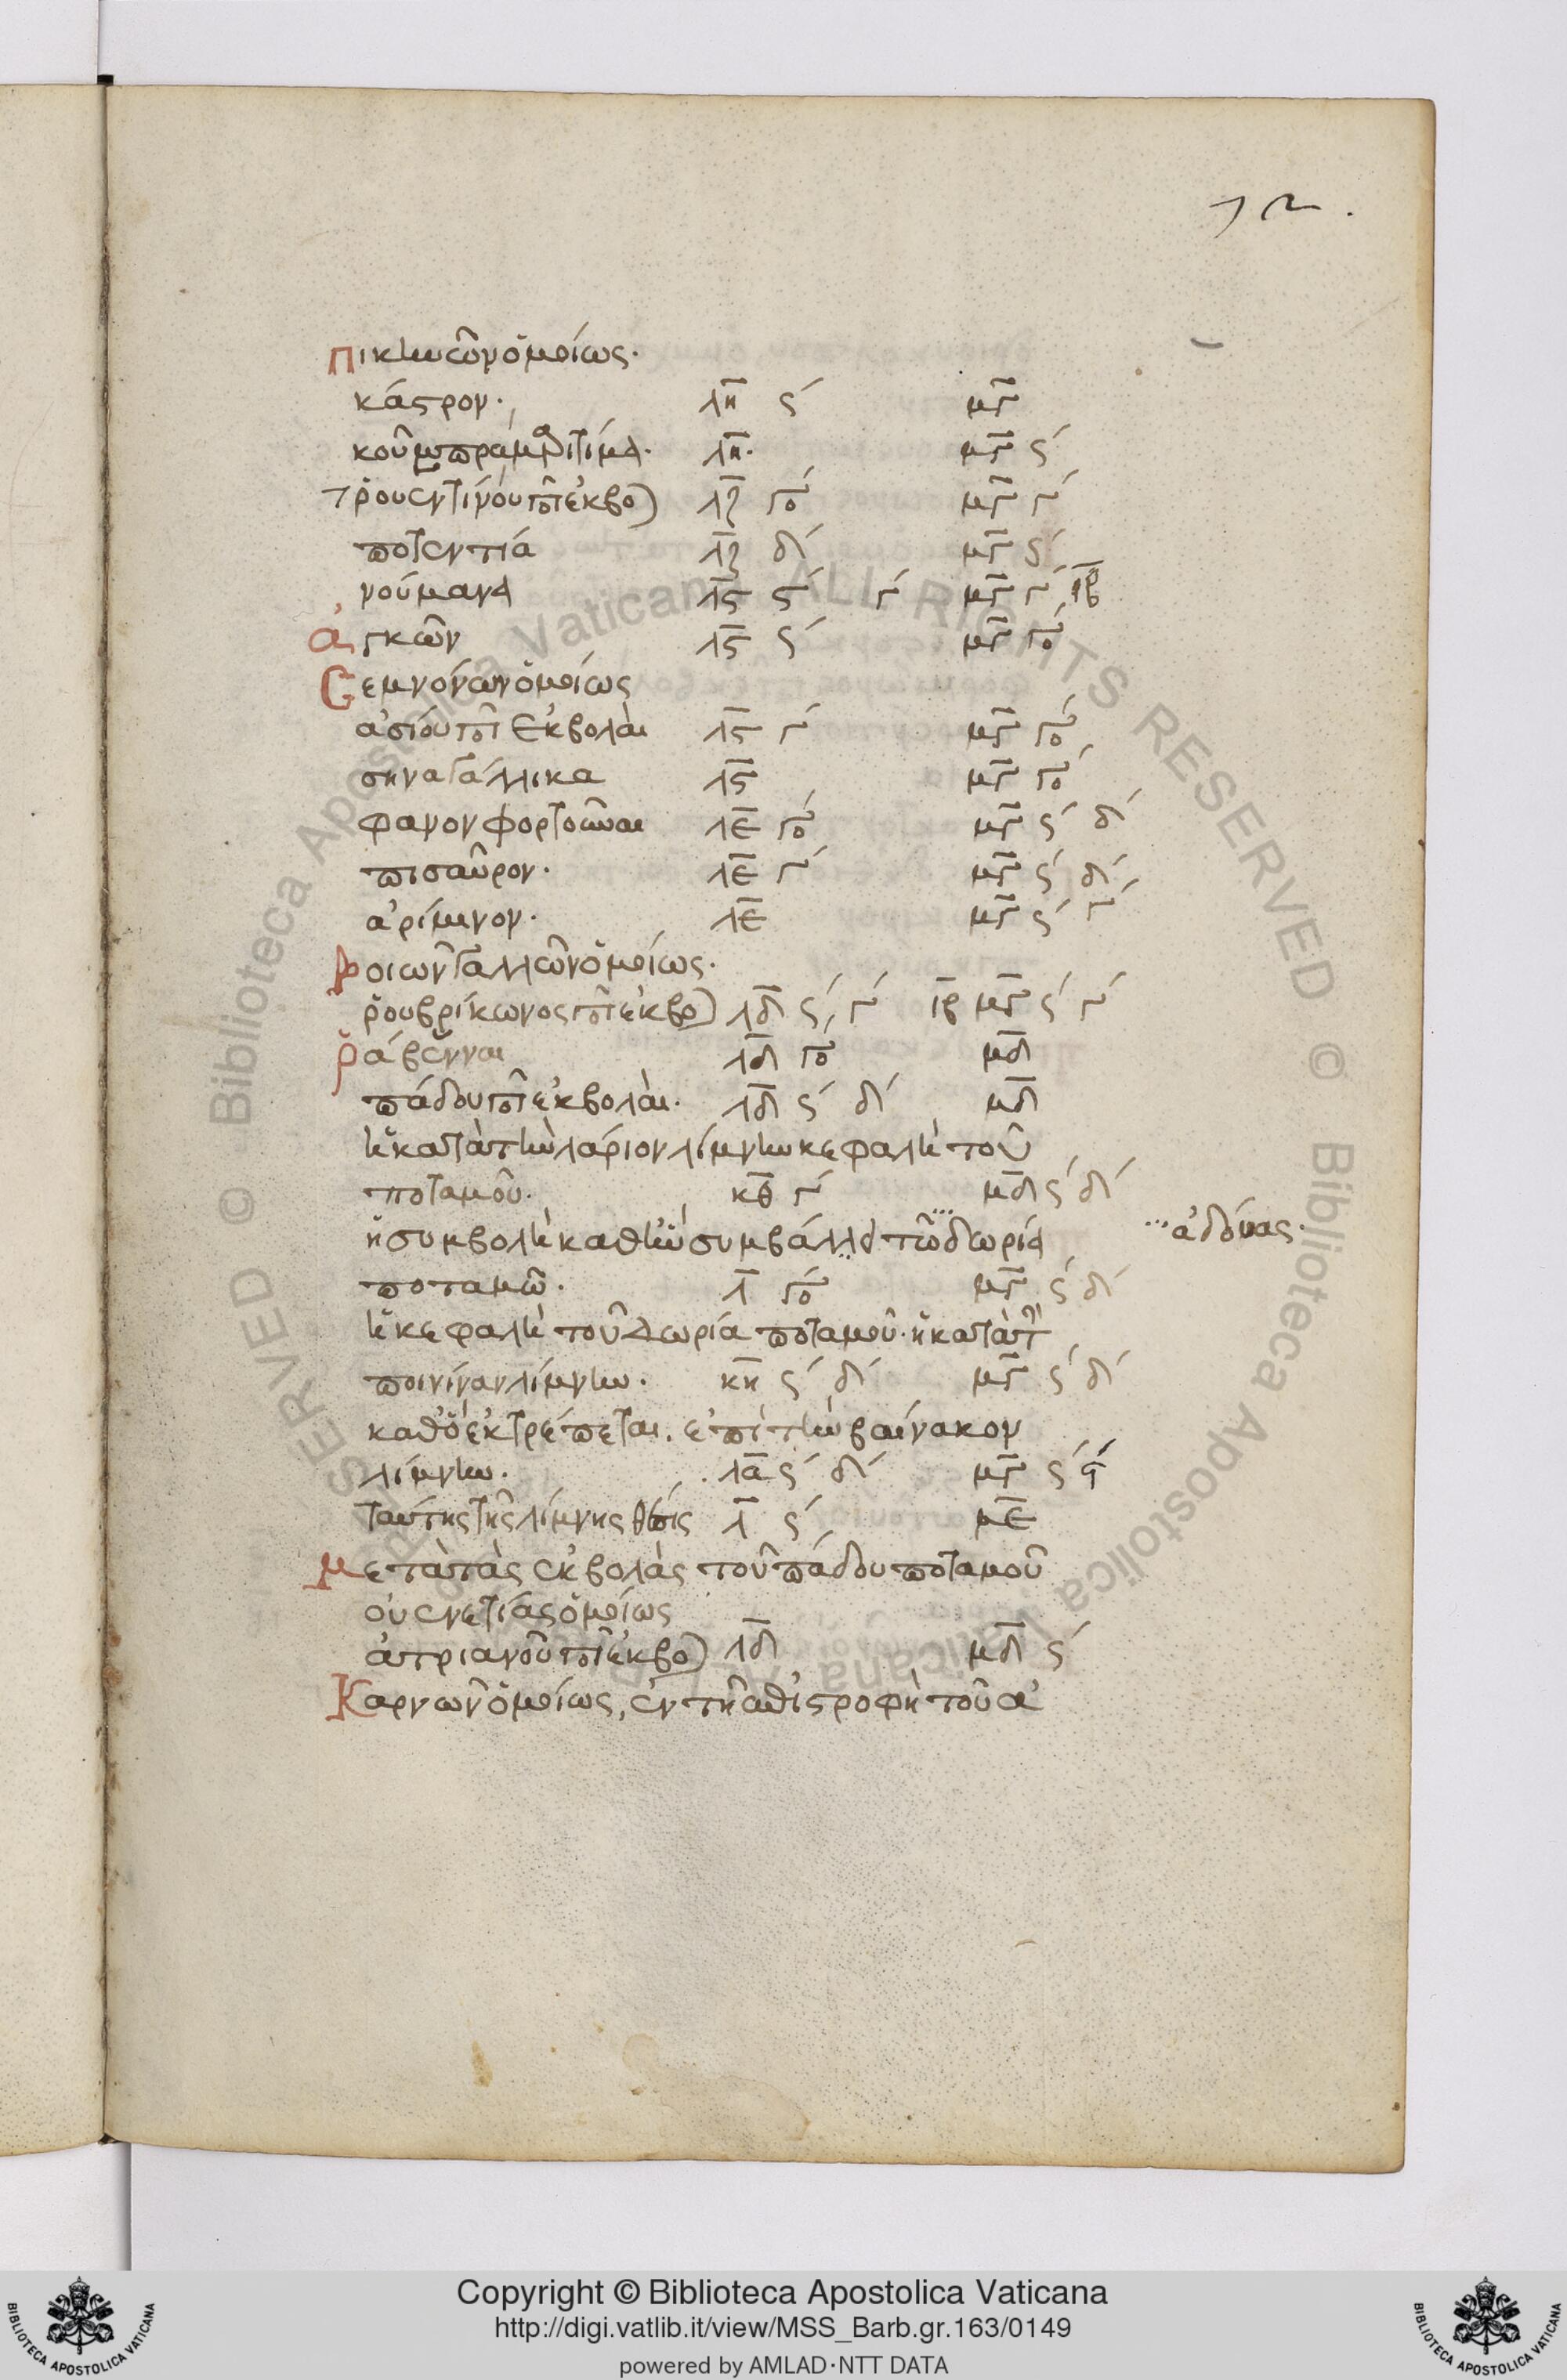 72.
Πικηνῶν ὁμοίως·
κάστρον· λη ϛ´ μγ
κοῦπρα μαριτίμα· λη· μγ ϛ´
τρουεντίνου πο͂τ ἐκβο) λζ γο´ μγ γ´
ποτεντία λζ δ´ μγ ϛ´
νούμανα λϛ ϛ´ γ´ μγ γ´ ιβ
ἀγκῶν λϛ ϛ´ μγ γο´
Σεμνόνων ὁμοίως
ἀσίου πο͂τ ἐκβολαὶ λϛ γ´ μγ γο´
σηναγάλλικα λϛ μγ γο´
φανον φορτοῦναι λε γο´ μγ ϛ´ δ´
πισαῦρον· λε γ´ μγ ϛ´ δ´
ἀρίμινον· λε μγ ϛ´ γ´
βοιων γαλλῶν ὁμοίως·
ῥουβρίκωνος πο͂τ ἐκβο) λδ ϛ´ γ´ ιβ μγ ϛ´ γ´
ῥάβενναι λδ γο´ μδ
πάδου πο͂τ ἐκβολαὶ· λδ ϛ´ δ´ μδ
ἡ κατὰ τὴν λάριον λίμνην κεφαλὴ τοῦ
ποταμοῦ· κθ γ´ μδ ϛ´ δ´
ἡ συμβολὴ καθ ἣν συμβάλλει τῶ δωρία
...ἀδόνας·
ποταμῶ· λ γο´ μγ ϛ´ δ´
ἡ κεφαλὴ τοῦ δωρία ποταμοῦ· ἡ κατὰ τ
ποινίναν λίμνην· κη ϛ´ δ´ μγ ϛ´ δ´
καθὸ ἐκτρέπεται· ἐπὶ τὴν βαίνακον
λίμνην· λα ϛ´ δ´ μγ ϛ´
ταύτης τῆς λίμνης θέσις λ ϛ´ με
Μετὰ τὰς ἐκβολὰς τοῦ πάδου ποταμοῦ
οὐενετίας ὁμοίως
ἀτριανοῦ πο͂τ ἐκβο) λδ μδ ϛ´
Καρνων ὁμοίως, ἐν τῆ ἐπιστροφῆ τοῦ ἀ
Copyright © Biblioteca Apostolica Vaticana
http://digi.vatlib.it/view/MSS_Barb.gr.163/0149
powered by AMLAD·NTT DATA